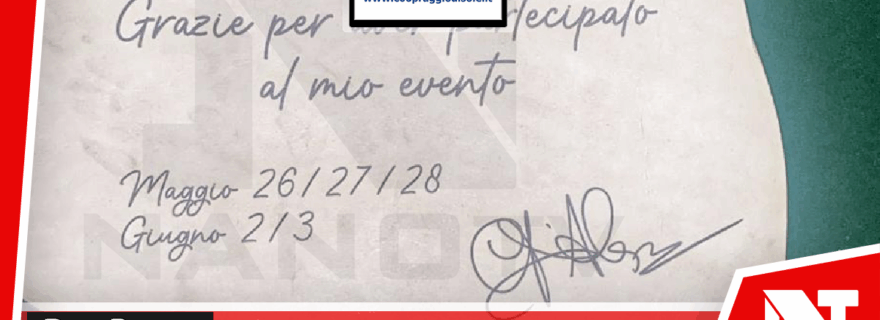 Grazie per aver partecipato
al mio evento
Maggio 26/27/28
Giugno 2/3
NANOTV